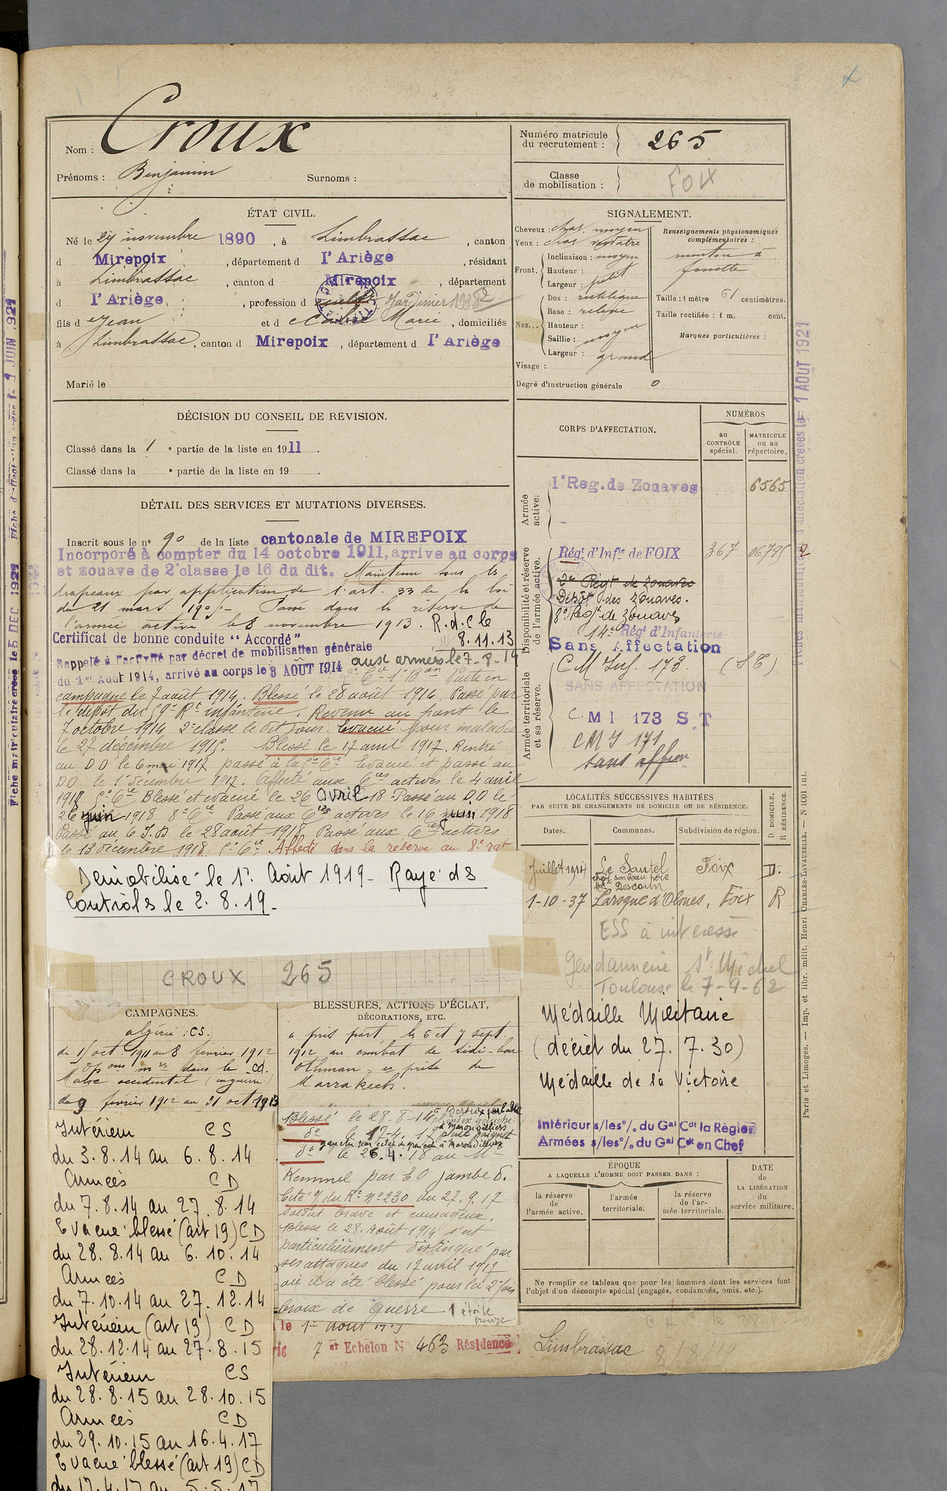 Nom : Croux
Prénoms : Benjamin Surnoms :
Numéro matricule du recrutement : 265
Classe de mobilisation : FOIX
ÉTAT CIVIL.
Né le 24 novembre 1890, à Limbrassac, canton
d Mirepoix, département d l'Ariège, résidant
à Limbrassac, canton d Mirepoix, département
d l'Ariège, profession d Jardinier
fils d Jean et d Marie, domiciliés
à Limbrassac, canton d Mirepoix, département d l'Ariège
Marié le
SIGNALEMENT.
Cheveux : chat. moyen
Yeux :
Front. Inclinaison : moyen
Hauteur : petit
Largeur :
Nez. Dos : rectiligne
Base : relevée
Hauteur :
Saillie : moyen
Largeur : grand
Visage :
Renseignements physionomiques
complémentaires :
menton à
fossette
Taille : 1 mètre 61 centimètres.
Taille rectifiée : 1 m. cent.
Marques particulières :
Degré d'instruction générale 0
DÉCISION DU CONSEIL DE REVISION.
Classé dans la 1 e partie de la liste en 1911.
Classé dans la e partie de la liste en 19
DÉTAIL DES SERVICES ET MUTATIONS DIVERSES.
Inscrit sous le n° 90 de la liste cantonale de MIREPOIX
Incorporé à compter du 14 octobre 1911, arrive au corps
et zouave de 2e classe le 16 du dit. Maintenu sous les
drapeaux par application de l'art. 33 de la loi
du 21 mars 190 Passé dans la réserve de
l'armée active le 8 novembre 1913. R.d.C le
8.11.13
Certificat de bonne conduite "Accordé"
Rappelé à l'activité par décret de mobilisation générale
du 1er Août 1914, arrivé au corps le 3 AOÛT 1914 aux armées le 7-8-14
campagne le 7 août 1914. Blessé le 28 août 1914. Passé par
le dépôt du 9e Rt infanterie. Revenu au front le
7 octobre 1914 2e classe le dit jour. Evacué pour maladie
le 27 décembre 191 . Blessé le 17 avril 1917. Rentré
au DD le 6 mai 1917 passé à la Cie Evacué et passé au
DD le 1er décembre 1917. Affecté aux Cies actives le 4 avril
1918 Cie Blessé et évacué le 26 Avril 18 Passé au DD le
26 juin 1918 8e Cie Passé aux Cies actives le 16 juin 1918
Passé au C.I.D le 28 août 1918 Passé aux Cies actives
le 13 décembre 1918 Cie Affecté dans la réserve au 8e rgt
Démobilisé le 1er Août 1919 - Rayé ds
Contrôls le 2.8.19-
CROUX 265
CAMPAGNES.
algérie : CS.
du 15 oct 1911 au 8 février 1912
Maroc occidental
du 9 février 1912 au 31 oct 1913
Intérieur CS
du 3.8.14 au 6.8.14
Armées CD
du 7.8.14 au 27.8.14
Evacué blessé (art 19) CD
du 28.8.14 au 6.10.14
Armées CD
du 7.10.14 au 27.12.14
Intérieur (art 19) CD
du 28.12.14 au 27.8.15
Intérieur CS
du 28.8.15 au 28.10.15
Armées CD
du 29.10.15 au 16.4.17
Evacué blessé (art 19) CD
du 17.4.17 au 5.5.17
BLESSURES, ACTIONS D'ÉCLAT,
DÉCORATIONS, ETC.
a pris part les 6 et 7 sept
1912 au combat de Sidi-bou
Othman et prise de
Marrakech.
Blessé le 28.8.14
do le 17-4-17
do le 26.4.18 au Mt
Kemmel par EO jambe d.
Cité à l'O du Rt n° 230 du 27.9.17
Soldat brave et courageux.
Blessé le 28 Août 1914 s'est
particulièrement distingué par
ses attaques du 17 avril 1917
où il a été blessé pour la 2e fois
Croix de Guerre 1 étoile bronze
le 1er août 19
7 er Echelon N° 463 Résidence Limbrassac
CORPS D'AFFECTATION.
NUMÉROS
au CONTRÔLE spécial.
MATRICULE ou au répertoire.
Armée active.
1e Reg. de Zouaves 6565
Disponibilité et réserve de l'armée active.
Régt d'Infie de FOIX 367 06795
2e Régt de Zouaves
Dépôt des Zouaves.
8e Régt de Zouaves
14e Régt d'Infanterie
Sans Affectation
Armée territoriale et sa réserve.
C M Inf. 173. (ST)
SANS AFFECTATION
C M I 173 S T
CMI 171
sans affon
LOCALITÉS SUCCESSIVES HABITÉES
PAR SUITE DE CHANGEMENTS DE DOMICILE OU DE RÉSIDENCE.
Dates. Communes. Subdivision de région. D. DOMICILE. R. RÉSIDENCE.
Juillet 1914 Le Sautel Foix D.
chez son beau père
Mr Descouln
1-10-37 Laroque d'Olmes, Foix R
ESS à intéressé
Gendarmerie St Michel
Toulouse le 7-9-62
Médaille Militaire
(décret du 27.7.30)
Médaille de la Victoire
Intérieur s/les o/o du Gal Cdt la Région
Armées s/les o/o du Gal Cdt en Chef
ÉPOQUE
A LAQUELLE L'HOMME DOIT PASSER DANS :
la réserve de l'armée active.
l'armée territoriale.
la réserve de l'armée territoriale.
DATE de LA LIBÉRATION du service militaire.
Ne remplir ce tableau que pour les hommes dont les services font
l'objet d'un décompte spécial (engagés, condamnés, omis, etc.).
Paris et Limoges. — Imp. et libr. milit. Henri CHARLES-LAVAUZELLE.
Fiche matriculaire créée le 5 DEC 1921
Fiche d'affectation créée le 1 JUIN 1921
Fiches d'affectation créées le 1 AOUT 1921